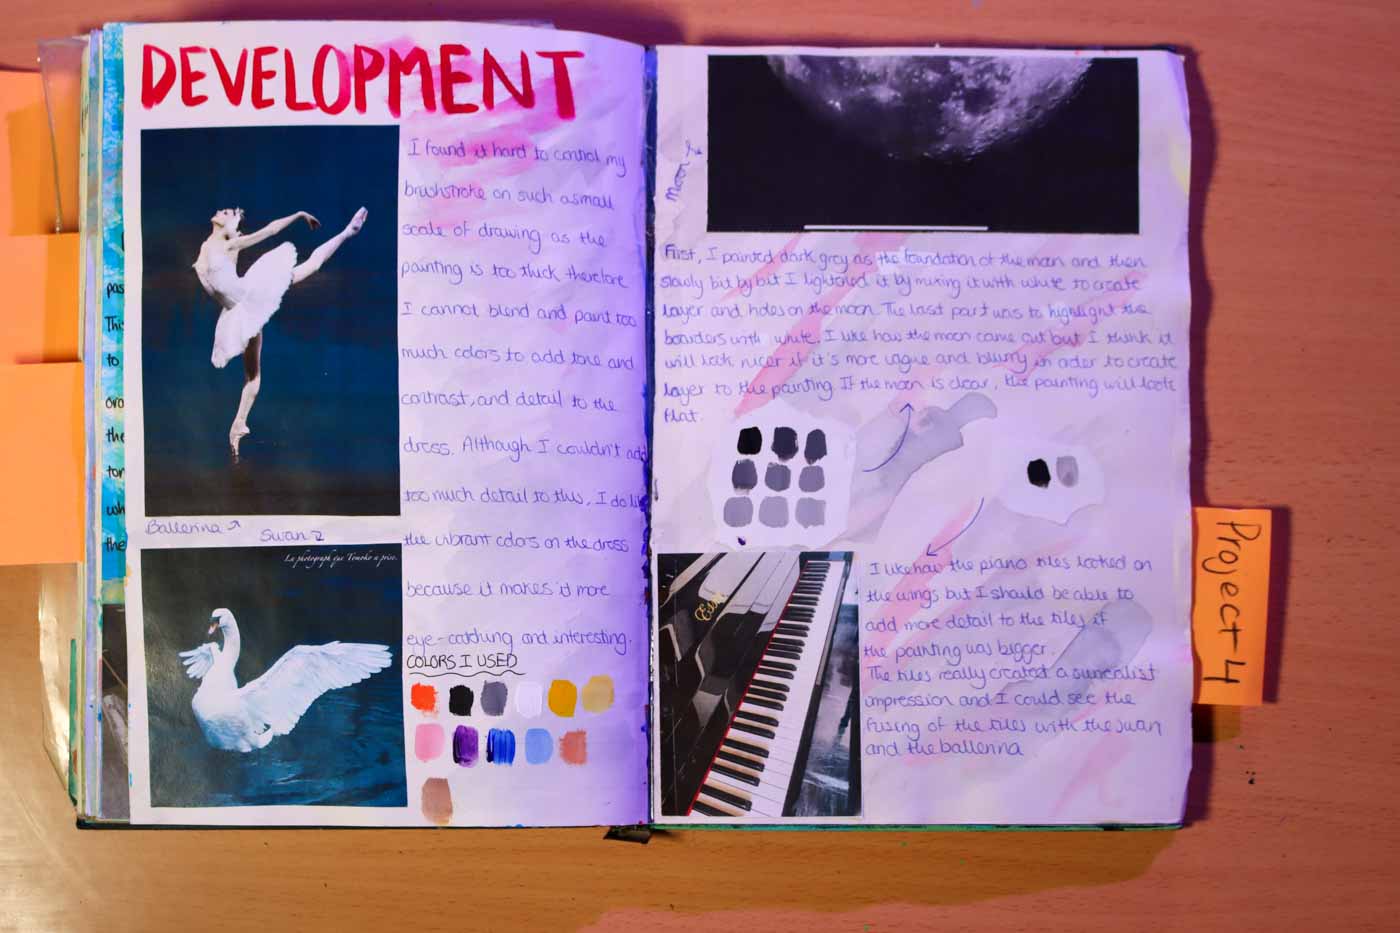 DEVELOPMENT
I found it hard to control my
brushstroke on such a small
scale of drawing as the
painting is too thick therefore
I cannot blend and paint too
much colors to add tone and
contrast, and detail to the
dress. Although I couldn't add
too much detail to this, I do like
the vibrant colors on the dress
because it makes it more
eye-catching and interesting.
Ballerina
Swan
La photograph que Tomoko a prise.
COLORS I USED
Moon
First, I painted dark grey as the foundation of the moon and then
slowly bit by bit I lightened it by mixing it with white to create
layer and holes on the moon. The last part was to highlight the
boarders with white. I like how the moon came out but I think it
will look nicer if it's more vague and blurry in order to create
layer to the painting. If the moon is clear, the painting will look
flat.
I like how the piano tiles looked on
the wings but I should be able to
add more detail to the tiles if
the painting was bigger.
The tiles really created a surrealist
impression and I could see the
fusing of the tiles with the swan
and the ballerina
Project-4
pas
This
to
the
ton
wh
the